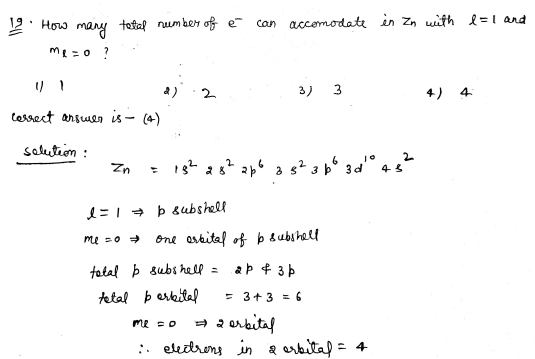 19. How many total number of e⁻ can accomodate in Zn with l=1 and
mℓ=0 ?
1) 1 2) 2 3) 3 4) 4
correct answer is – (4)
solution :
Zn = 1s² 2s² 2p⁶ 3s² 3p⁶ 3d¹⁰ 4s²
l=1 ⇒ p subshell
mℓ=0 ⇒ one orbital of p subshell
total p subshell = 2p & 3p
total p orbital = 3+3 = 6
mℓ=0 ⇒ 2 orbital
∴ electrons in 2 orbital = 4